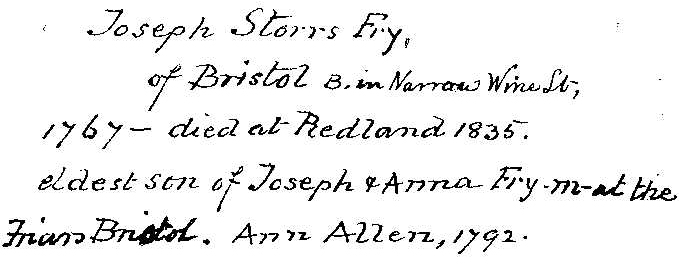 Joseph Storrs Fry,
of Bristol B. in Narrow Wine St,
1767 – died at Redland 1835.
eldest son of Joseph & Anna Fry – m – at the
Friars Bristol. Ann Allen, 1792.